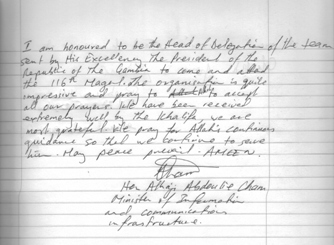 I am honoured to be the Head of Delegation of the team
sent by His Excellency The President of the
Republic of the Gambia to come and attend
the 116th Magal. The organisation is quite
impressive and pray to to accept
all our prayers. We have been received
extremely well by the Khalifa we are
most grateful. We pray for Allah's continuous
guidance so that we continue to serve
him. May peace prevail. AMEEN.
Hon Alhaji Abdoulie Cham
Minister of Information
and communications
infrastructure.